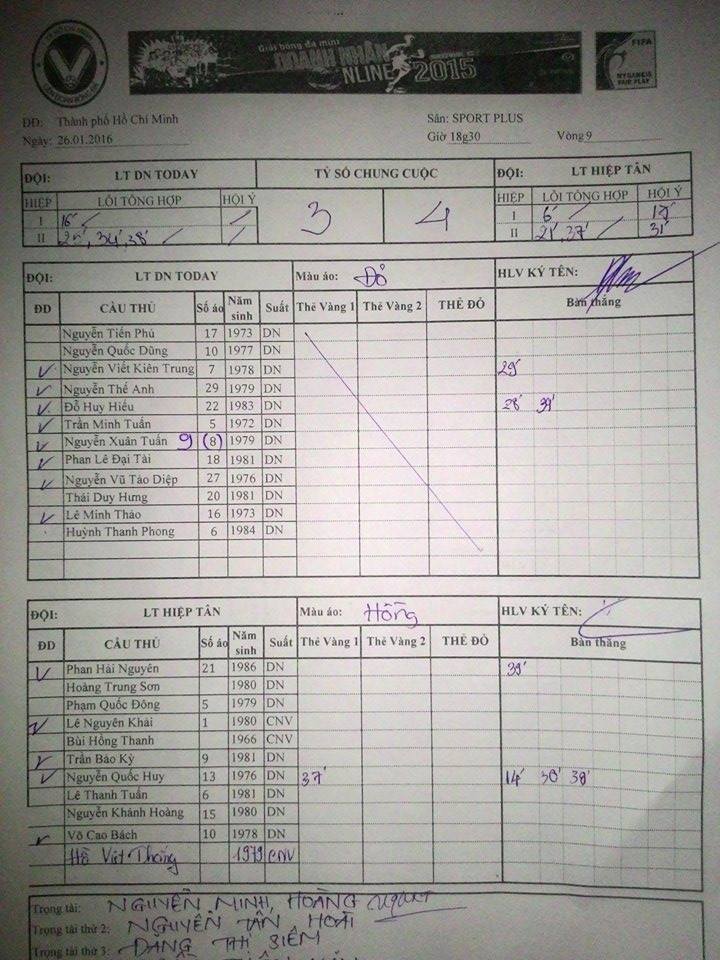 Giải bóng đá mini
DOANH NHÂN
NLINE 2015
FIFA
MY GAME IS
FAIR PLAY
ĐĐ: Thành phố Hồ Chí Minh Sân: SPORT PLUS
Ngày: 26.01.2016 Giờ 18g30 Vòng 9
ĐỘI: LT DN TODAY TỶ SỐ CHUNG CUỘC ĐỘI: LT HIỆP TÂN
HIỆP LỖI TỔNG HỢP HỘI Ý 3 4 HIỆP LỖI TỔNG HỢP HỘI Ý
I 16' I 6' 17'
II 25', 34', 38' II 21', 37' 31'
ĐỘI: LT DN TODAY Màu áo: Đỏ HLV KÝ TÊN:
ĐD CẦU THỦ Số áo Năm sinh Suất Thẻ Vàng 1 Thẻ Vàng 2 THẺ ĐỎ Bàn thắng
Nguyễn Tiến Phú 17 1973 DN
Nguyễn Quốc Dũng 10 1977 DN
✓ Nguyễn Viết Kiên Trung 7 1978 DN 29'
✓ Nguyễn Thế Anh 29 1979 DN
✓ Đỗ Huy Hiếu 22 1983 DN 28' 39'
✓ Trần Minh Tuấn 5 1972 DN
✓ Nguyễn Xuân Tuấn 9 (8) 1979 DN
✓ Phan Lê Đại Tài 18 1981 DN
✓ Nguyễn Vũ Táo Diệp 27 1976 DN
Thái Duy Hưng 20 1981 DN
✓ Lê Minh Thảo 16 1973 DN
Huỳnh Thanh Phong 6 1984 DN
ĐỘI: LT HIỆP TÂN Màu áo: Hồng HLV KÝ TÊN:
ĐD CẦU THỦ Số áo Năm sinh Suất Thẻ Vàng 1 Thẻ Vàng 2 THẺ ĐỎ Bàn thắng
✓ Phan Hải Nguyên 21 1986 DN 39'
Hoàng Trung Sơn 1980 DN
Phạm Quốc Đông 5 1979 DN
✓ Lê Nguyên Khải 1 1980 CNV
Bùi Hồng Thanh 1966 CNV
✓ Trần Bảo Kỳ 9 1981 DN
✓ Nguyễn Quốc Huy 13 1976 DN 37' 14' 30' 38'
Lê Thanh Tuấn 6 1981 DN
Nguyễn Khánh Hoàng 15 1980 DN
✓ Võ Cao Bách 10 1978 DN
Hồ Việt Thắng 1979 CNV
Trọng tài: NGUYỄN MINH HOÀNG
Trọng tài thứ 2: NGUYỄN TẤN HOÀI
Trọng tài thứ 3: ĐẶNG THỊ BIÊM